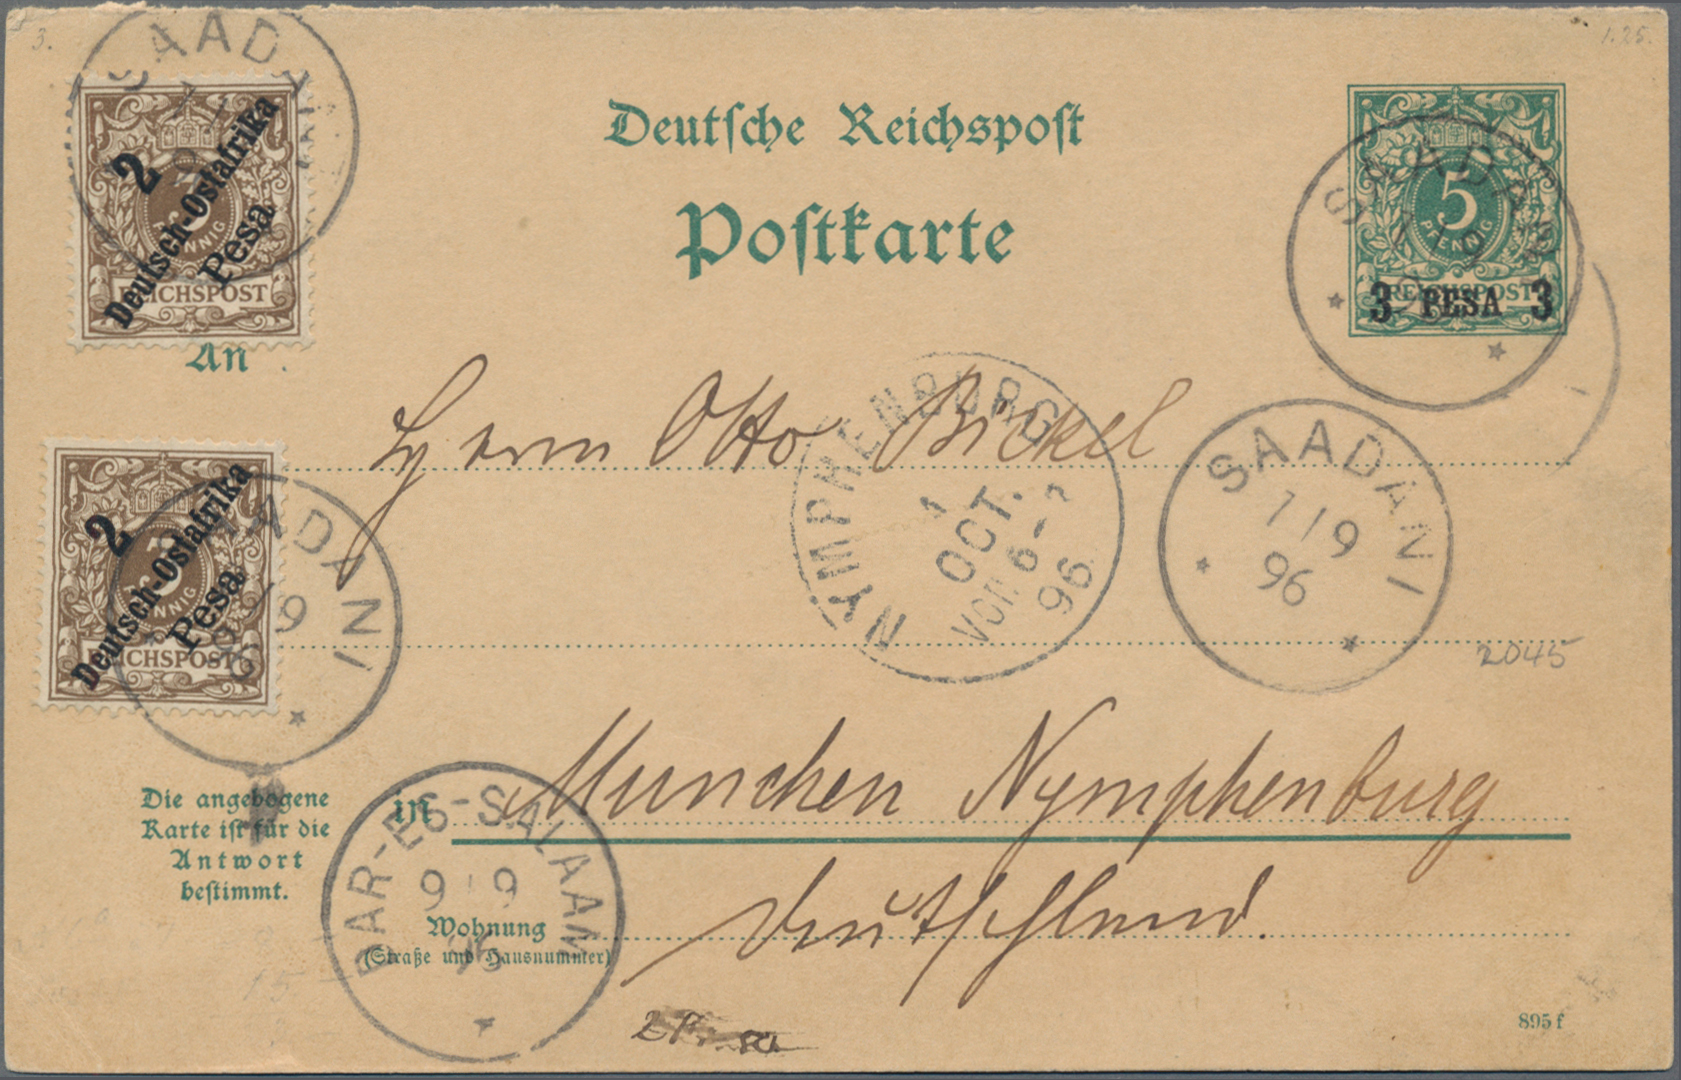 3.
1.25.
SAADANI
2
3
PFENNIG
Deutsch-Ostafrika
Pesa
REICHSPOST
Deutsche Reichspost
Postkarte
SAADANI
1/9
96
5
PFENNIG
REICHSPOST
3 PESA 3
An
Herrn Otto Bickel
NYMPHENBURG
1
OCT.
VOR. 6-7
96
SAADANI
1/9
96
2
3
PFENNIG
Deutsch-Ostafrika
Pesa
REICHSPOST
SAADANI
1/9
96
2045
in München Nymphenburg
Die angebogene
Karte ist für die
Antwort
bestimmt.
DAR-ES-SALAAM
9/9
96
Deutschland.
Wohnung
(Straße und Hausnummer)
15
895 f